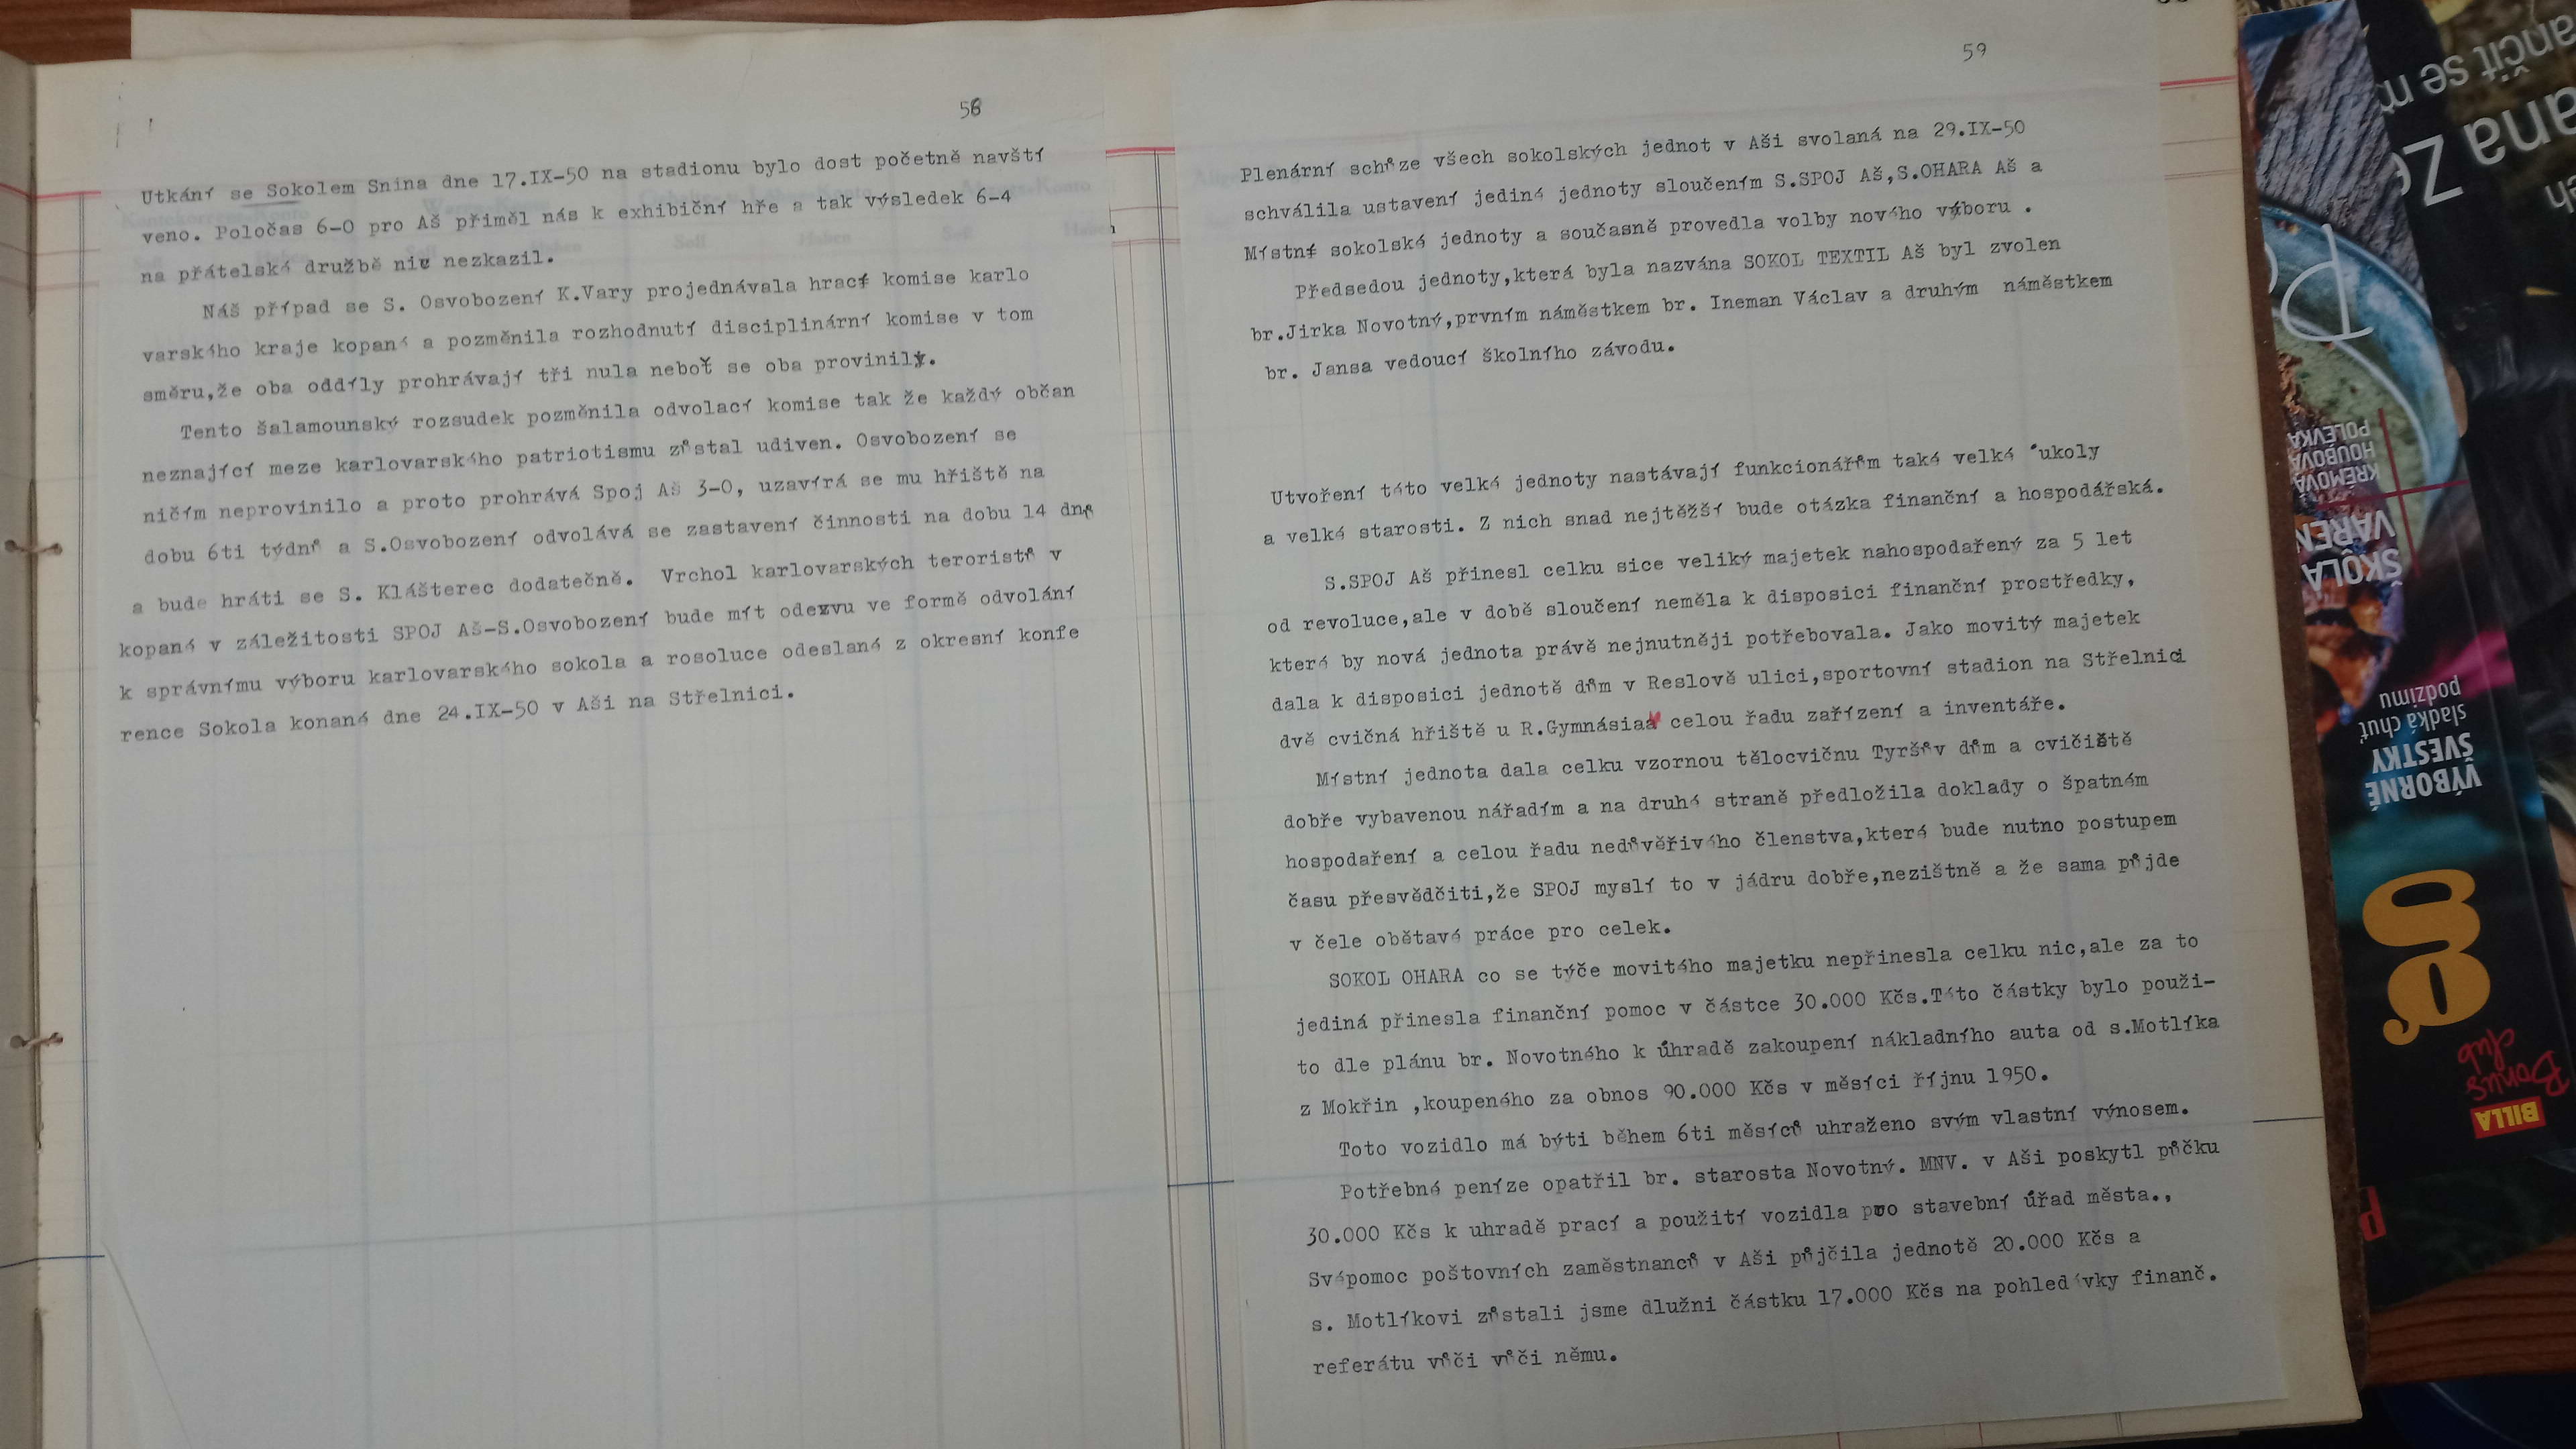 58
Utkání se Sokolem Snina dne 17.IX-50 na stadionu bylo dost početně navští
veno. Poločas 6-0 pro Aš přiměl nás k exhibiční hře a tak výsledek 6-4
na přátelské družbě nic nezkazil.
Náš případ se S. Osvobození K.Vary projednávala hrací komise karlo
varského kraje kopané a pozměnila rozhodnutí disciplinární komise v tom
směru,že oba oddíly prohrávají tři nula neboť se oba provinily.
Tento šalamounský rozsudek pozměnila odvolací komise tak že každý občan
neznající meze karlovarského patriotismu zůstal udiven. Osvobození se
ničím neprovinilo a proto prohrává Spoj Aš 3-0, uzavírá se mu hřiště na
dobu 6ti týdnů a S.Osvobození odvolává se zastavení činnosti na dobu 14 dnů
a bude hráti se S. Klášterec dodatečně. Vrchol karlovarských teroristů v
kopané v záležitosti SPOJ Aš-S.Osvobození bude mít odezvu ve formě odvolání
k správnímu výboru karlovarského sokola a rosoluce odeslané z okresní konfe
rence Sokola konané dne 24.IX-50 v Aši na Střelnici.
59
Plenární schůze všech sokolských jednot v Aši svolaná na 29.IX-50
schválila ustavení jediné jednoty sloučením S.SPOJ Aš,S.OHARA Aš a
Místní sokolské jednoty a současně provedla volby nového výboru .
Předsedou jednoty,která byla nazvána SOKOL TEXTIL Aš byl zvolen
br.Jirka Novotný,prvním náměstkem br. Ineman Václav a druhým náměstkem
br. Jansa vedoucí školního závodu.
Utvoření této velké jednoty nastávají funkcionářům také velké ´ukoly
a velké starosti. Z nich snad nejtěžší bude otázka finanční a hospodářská.
S.SPOJ Aš přinesl celku sice veliký majetek nahospodařený za 5 let
od revoluce,ale v době sloučení neměla k disposici finanční prostředky,
které by nová jednota právě nejnutněji potřebovala. Jako movitý majetek
dala k disposici jednotě dům v Reslově ulici,sportovní stadion na Střelnici
dvě cvičná hřiště u R.Gymnásiaa celou řadu zařízení a inventáře.
Místní jednota dala celku vzornou tělocvičnu Tyršův dům a cvičiště
dobře vybavenou nářadím a na druhé straně předložila doklady o špatném
hospodaření a celou řadu nedůvěřivého členstva,které bude nutno postupem
času přesvědčiti,že SPOJ myslí to v jádru dobře,nezištně a že sama půjde
v čele obětavé práce pro celek.
SOKOL OHARA co se týče movitého majetku nepřinesla celku nic,ale za to
jediná přinesla finanční pomoc v částce 30.000 Kčs.Této částky bylo použi-
to dle plánu br. Novotného k úhradě zakoupení nákladního auta od s.Motlíka
z Mokřin ,koupeného za obnos 90.000 Kčs v měsíci říjnu 1950.
Toto vozidlo má býti během 6ti měsíců uhraženo svým vlastní výnosem.
Potřebné peníze opatřil br. starosta Novotný. MNV. v Aši poskytl půčku
30.000 Kčs k uhradě prací a použití vozidla pro stavební úřad města.,
Svépomoc poštovních zaměstnanců v Aši půjčila jednotě 20.000 Kčs a
s. Motlíkovi zůstali jsme dlužni částku 17.000 Kčs na pohledávky finanč.
referátu vůči vůči němu.
KRÉMOVÁ
HOUBOVÁ
POLÉVKA
ŠKOLA
VAŘEN
VÝBORNÉ
ŠVESTKY
sladká chuť
podzimu
BILLA
Bonus
club